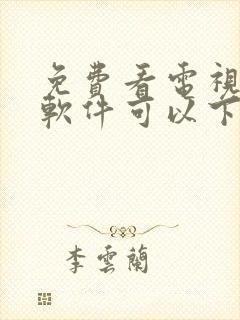 免費看電視
軟件可以下
李雲蘭